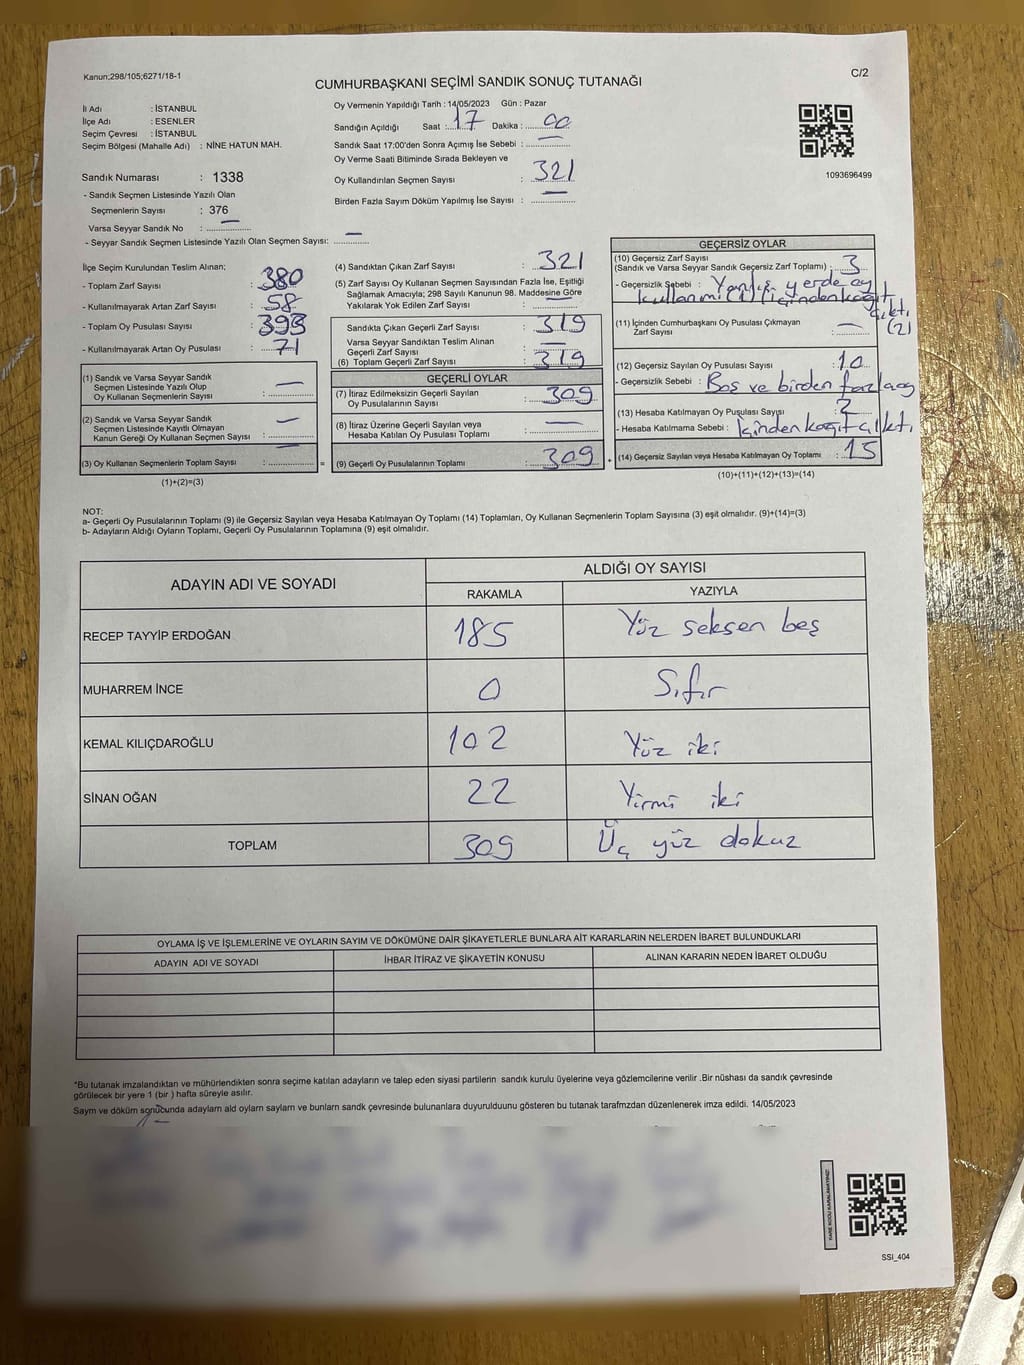 Kanun;298/105;6271/18-1
C/2
CUMHURBAŞKANI SEÇİMİ SANDIK SONUÇ TUTANAĞI
İl Adı : İSTANBUL
İlçe Adı : ESENLER
Seçim Çevresi : İSTANBUL
Seçim Bölgesi (Mahalle Adı) : NİNE HATUN MAH.
Sandık Numarası : 1338
- Sandık Seçmen Listesinde Yazılı Olan
Seçmenlerin Sayısı : 376
Varsa Seyyar Sandık No : —
- Seyyar Sandık Seçmen Listesinde Yazılı Olan Seçmen Sayısı: —
Oy Vermenin Yapıldığı Tarih : 14/05/2023 Gün : Pazar
Sandığın Açıldığı Saat : 17 Dakika : 00
Sandık Saat 17:00'den Sonra Açımış İse Sebebi : —
Oy Verme Saati Bitiminde Sırada Bekleyen ve
Oy Kullandırılan Seçmen Sayısı : 321
Birden Fazla Sayım Döküm Yapılmış İse Sayısı : —
1093696499
İlçe Seçim Kurulundan Teslim Alınan;
- Toplam Zarf Sayısı : 380
- Kullanılmayarak Artan Zarf Sayısı : 58
- Toplam Oy Pusulası Sayısı : 393
- Kullanılmayarak Artan Oy Pusulası : 71
(1) Sandık ve Varsa Seyyar Sandık
Seçmen Listesinde Yazılı Olup
Oy Kullanan Seçmenlerin Sayısı : —
(2) Sandık ve Varsa Seyyar Sandık
Seçmen Listesinde Kayıtlı Olmayan
Kanun Gereği Oy Kullanan Seçmen Sayısı : —
(3) Oy Kullanan Seçmenlerin Toplam Sayısı : — =
(1)+(2)=(3)
(4) Sandıktan Çıkan Zarf Sayısı : 321
(5) Zarf Sayısı Oy Kullanan Seçmen Sayısından Fazla İse, Eşitliği
Sağlamak Amacıyla; 298 Sayılı Kanunun 98. Maddesine Göre
Yakılarak Yok Edilen Zarf Sayısı : —
Sandıkta Çıkan Geçerli Zarf Sayısı : 319
Varsa Seyyar Sandıktan Teslim Alınan
Geçerli Zarf Sayısı : —
(6) Toplam Geçerli Zarf Sayısı : 319
GEÇERLİ OYLAR
(7) İtiraz Edilmeksizin Geçerli Sayılan
Oy Pusulalarının Sayısı : 309
(8) İtiraz Üzerine Geçerli Sayılan veya
Hesaba Katılan Oy Pusulası Toplamı : —
(9) Geçerli Oy Pusulalarının Toplamı : 309
GEÇERSİZ OYLAR
(10) Geçersiz Zarf Sayısı
(Sandık ve Varsa Seyyar Sandık Geçersiz Zarf Toplamı) : 3
- Geçersizlik Sebebi : Yanlış yerde oy
kullanımı (1) İçinden kağıt
çıktı
(2)
(11) İçinden Cumhurbaşkanı Oy Pusulası Çıkmayan
Zarf Sayısı : —
(12) Geçersiz Sayılan Oy Pusulası Sayısı : 10
- Geçersizlik Sebebi : Boş ve birden fazla oy
(13) Hesaba Katılmayan Oy Pusulası Sayısı : 2
- Hesaba Katılmama Sebebi : İçinden kağıt çıktı
(14) Geçersiz Sayılan veya Hesaba Katılmayan Oy Toplamı : 15
(10)+(11)+(12)+(13)=(14)
NOT:
a- Geçerli Oy Pusulalarının Toplamı (9) ile Geçersiz Sayılan veya Hesaba Katılmayan Oy Toplamı (14) Toplamları, Oy Kullanan Seçmenlerin Toplam Sayısına (3) eşit olmalıdır. (9)+(14)=(3)
b- Adayların Aldığı Oyların Toplamı, Geçerli Oy Pusulalarının Toplamına (9) eşit olmalıdır.
ADAYIN ADI VE SOYADI ALDIĞI OY SAYISI
RAKAMLA YAZIYLA
RECEP TAYYİP ERDOĞAN 185 Yüz seksen beş
MUHARREM İNCE 0 Sıfır
KEMAL KILIÇDAROĞLU 102 Yüz iki
SİNAN OĞAN 22 Yirmi iki
TOPLAM 309 Üç yüz dokuz
OYLAMA İŞ VE İŞLEMLERİNE VE OYLARIN SAYIM VE DÖKÜMÜNE DAİR ŞİKAYETLERLE BUNLARA AİT KARARLARIN NELERDEN İBARET BULUNDUKLARI
ADAYIN ADI VE SOYADI İHBAR İTİRAZ VE ŞİKAYETİN KONUSU ALINAN KARARIN NEDEN İBARET OLDUĞU
*Bu tutanak imzalandıktan ve mühürlendikten sonra seçime katılan adayların ve talep eden siyasi partilerin sandık kurulu üyelerine veya gözlemcilerine verilir .Bir nüshası da sandık çevresinde
görülecek bir yere 1 (bir ) hafta süreyle asılır.
Saym ve döküm sonucunda adaylarn ald oylarn saylarn ve bunlarn sandk çevresinde bulunanlara duyurulduunu gösteren bu tutanak tarafmzdan düzenlenerek imza edildi. 14/05/2023
KARE KODU KARALAMAYINIZ!
SSİ_404